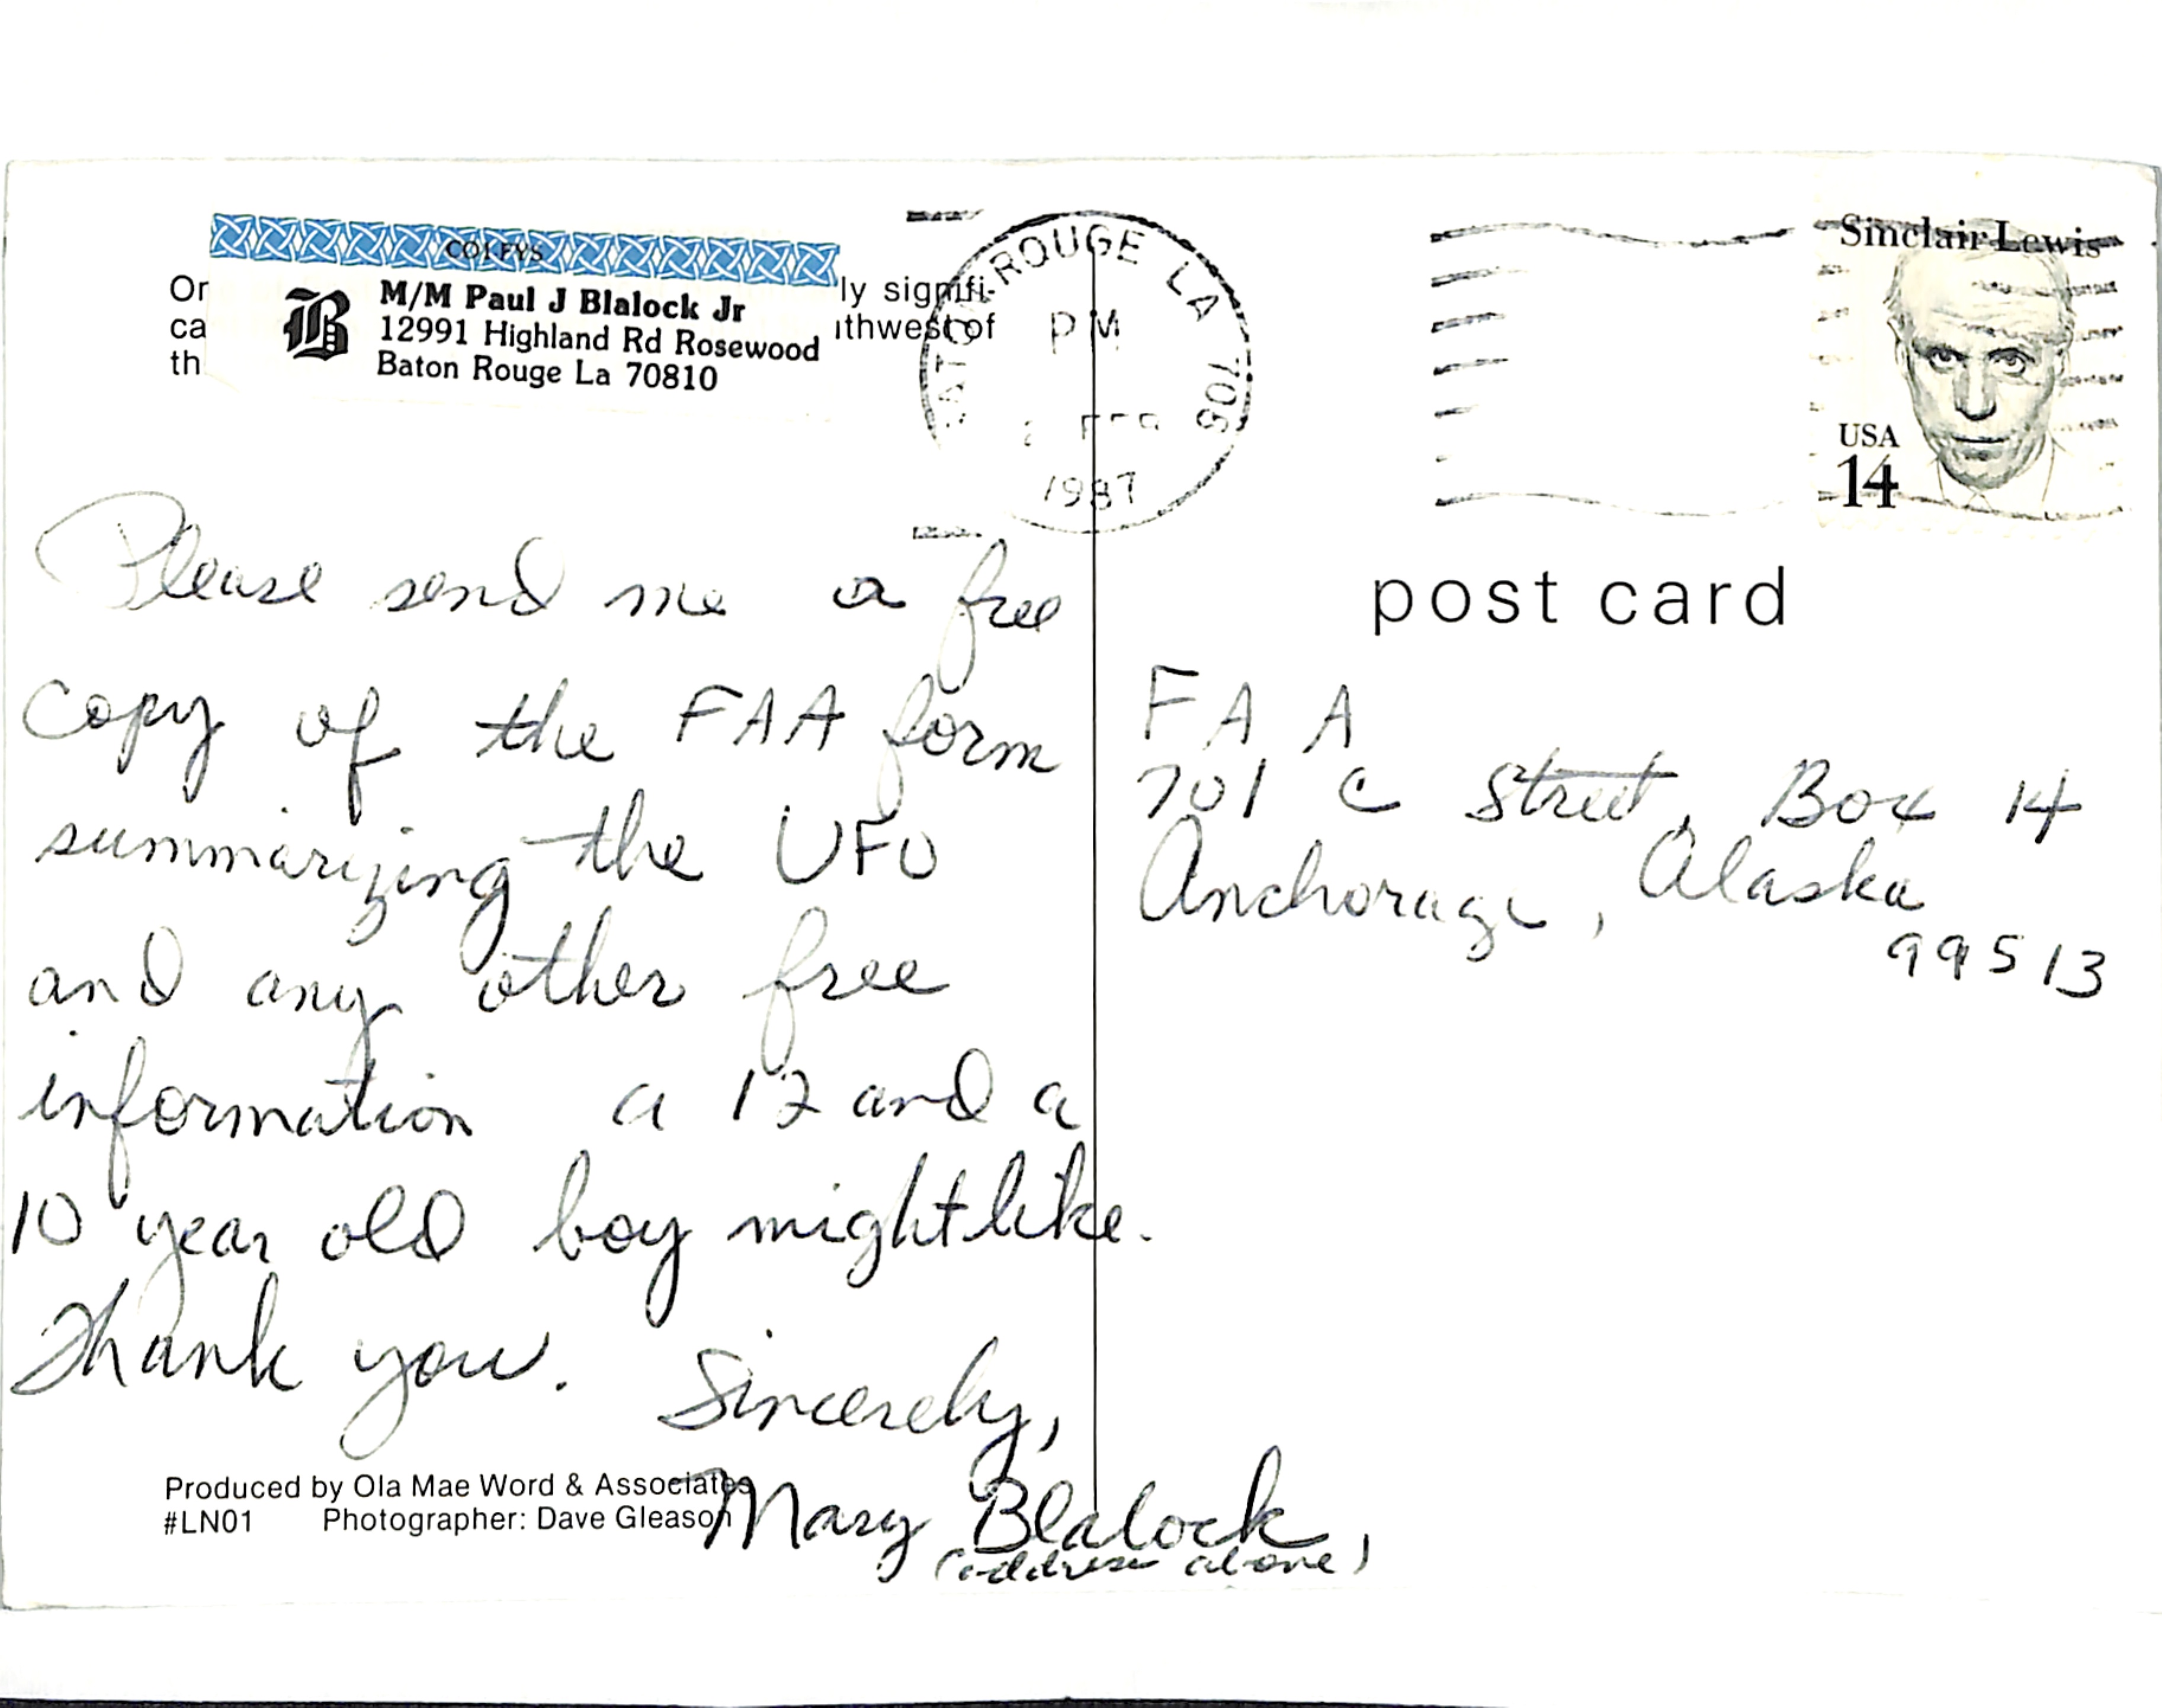 COLEYS
Or
ly signifi-
ca
ithwest of
th
B
M/M Paul J Blalock Jr
12991 Highland Rd Rosewood
Baton Rouge La 70810
ROUGE LA 708
PM
1987
Sinclair Lewis
USA
14
post card
Please send me a free
copy of the FAA form
summarizing the UFO
and any other free
information a 12 and a
10 year old boy might like.
Thank you. Sincerely,
Mary Blalock
(address above)
FAA
701 C Street, Box 14
Anchorage, Alaska
99513
Produced by Ola Mae Word & Associates
#LN01 Photographer: Dave Gleason